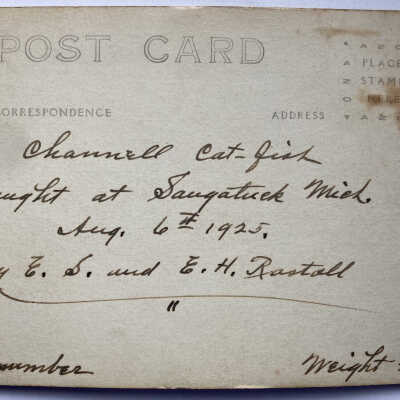 POST CARD
PLACE
STAMP
HERE
AZO
CORRESPONDENCE
ADDRESS
Channell Cat-fish
ught at Saugatuck Mich.
Aug. 6th 1925.
y E. S. and E. H. Rastall
"
number
Weight